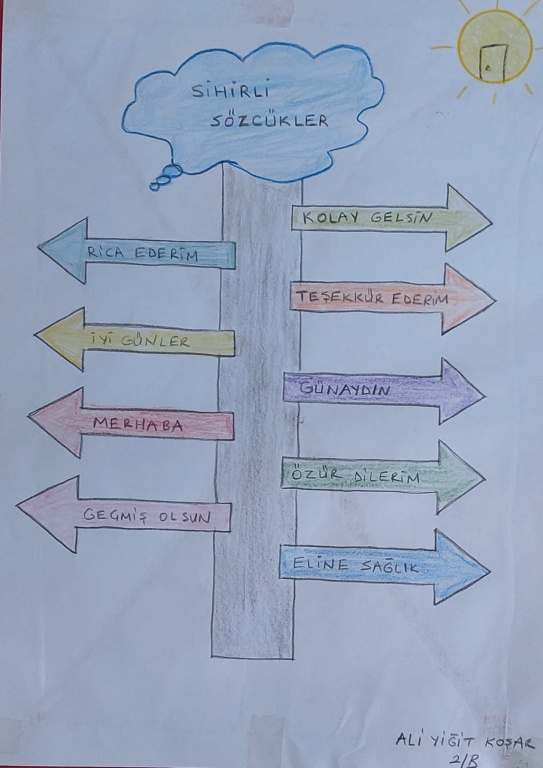 SİHİRLİ
SÖZCÜKLER
KOLAY GELSİN
RİCA EDERİM
TEŞEKKÜR EDERİM
İYİ GÜNLER
GÜNAYDIN
MERHABA
ÖZÜR DİLERİM
GEÇMİŞ OLSUN
ELİNE SAĞLIK
ALİ YİĞİT KOŞAR
2/B